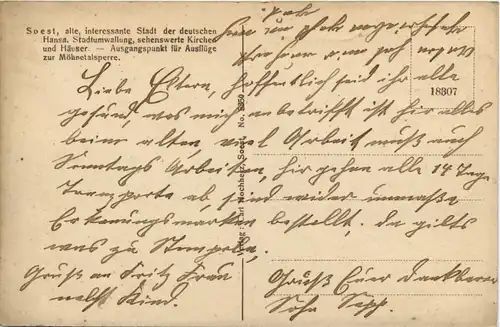 Soest, alte, interessante Stadt der deutschen
Hansa. Stadtumwallung, sehenswerte Kirchen
und Häuser. — Ausgangspunkt für Ausflüge
zur Möhnetalsperre.
18307
Verlag: Hochherz, Soest. No.
Liebe Eltern, hoffentlich seid ihr alle
gesund, was mich anbetrifft ist hir alles
beim alten, viel Arbeit muß auch
Sonntags Arbeiten, hir gehen alle 14 Tage
Transporte ab, sind wider unmaße
Erkenungsmarken bestellt. Da gilts
was zu Stempeln.
Gruß an Fritz Frau
nebst Kind.
Gruß Euer dankbarer
Sohn Sepp.